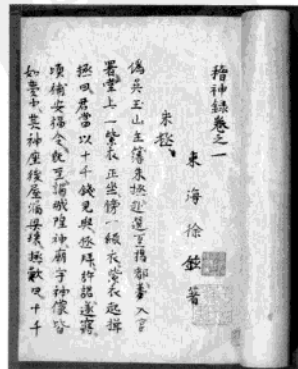 稽神録卷之一
東海徐鉉著
朱拯
偽吳玉山主簿朱拯赴選至揚都夢入官
署堂上一紫衣正坐傍一綠衣紫衣起揖
拯曰君當以十千錢見與拯拜許諾遂寤
頃補安福令既至謁城隍神廟宇神像皆
如夢中其神座後屋漏梁壞拯歎曰十千